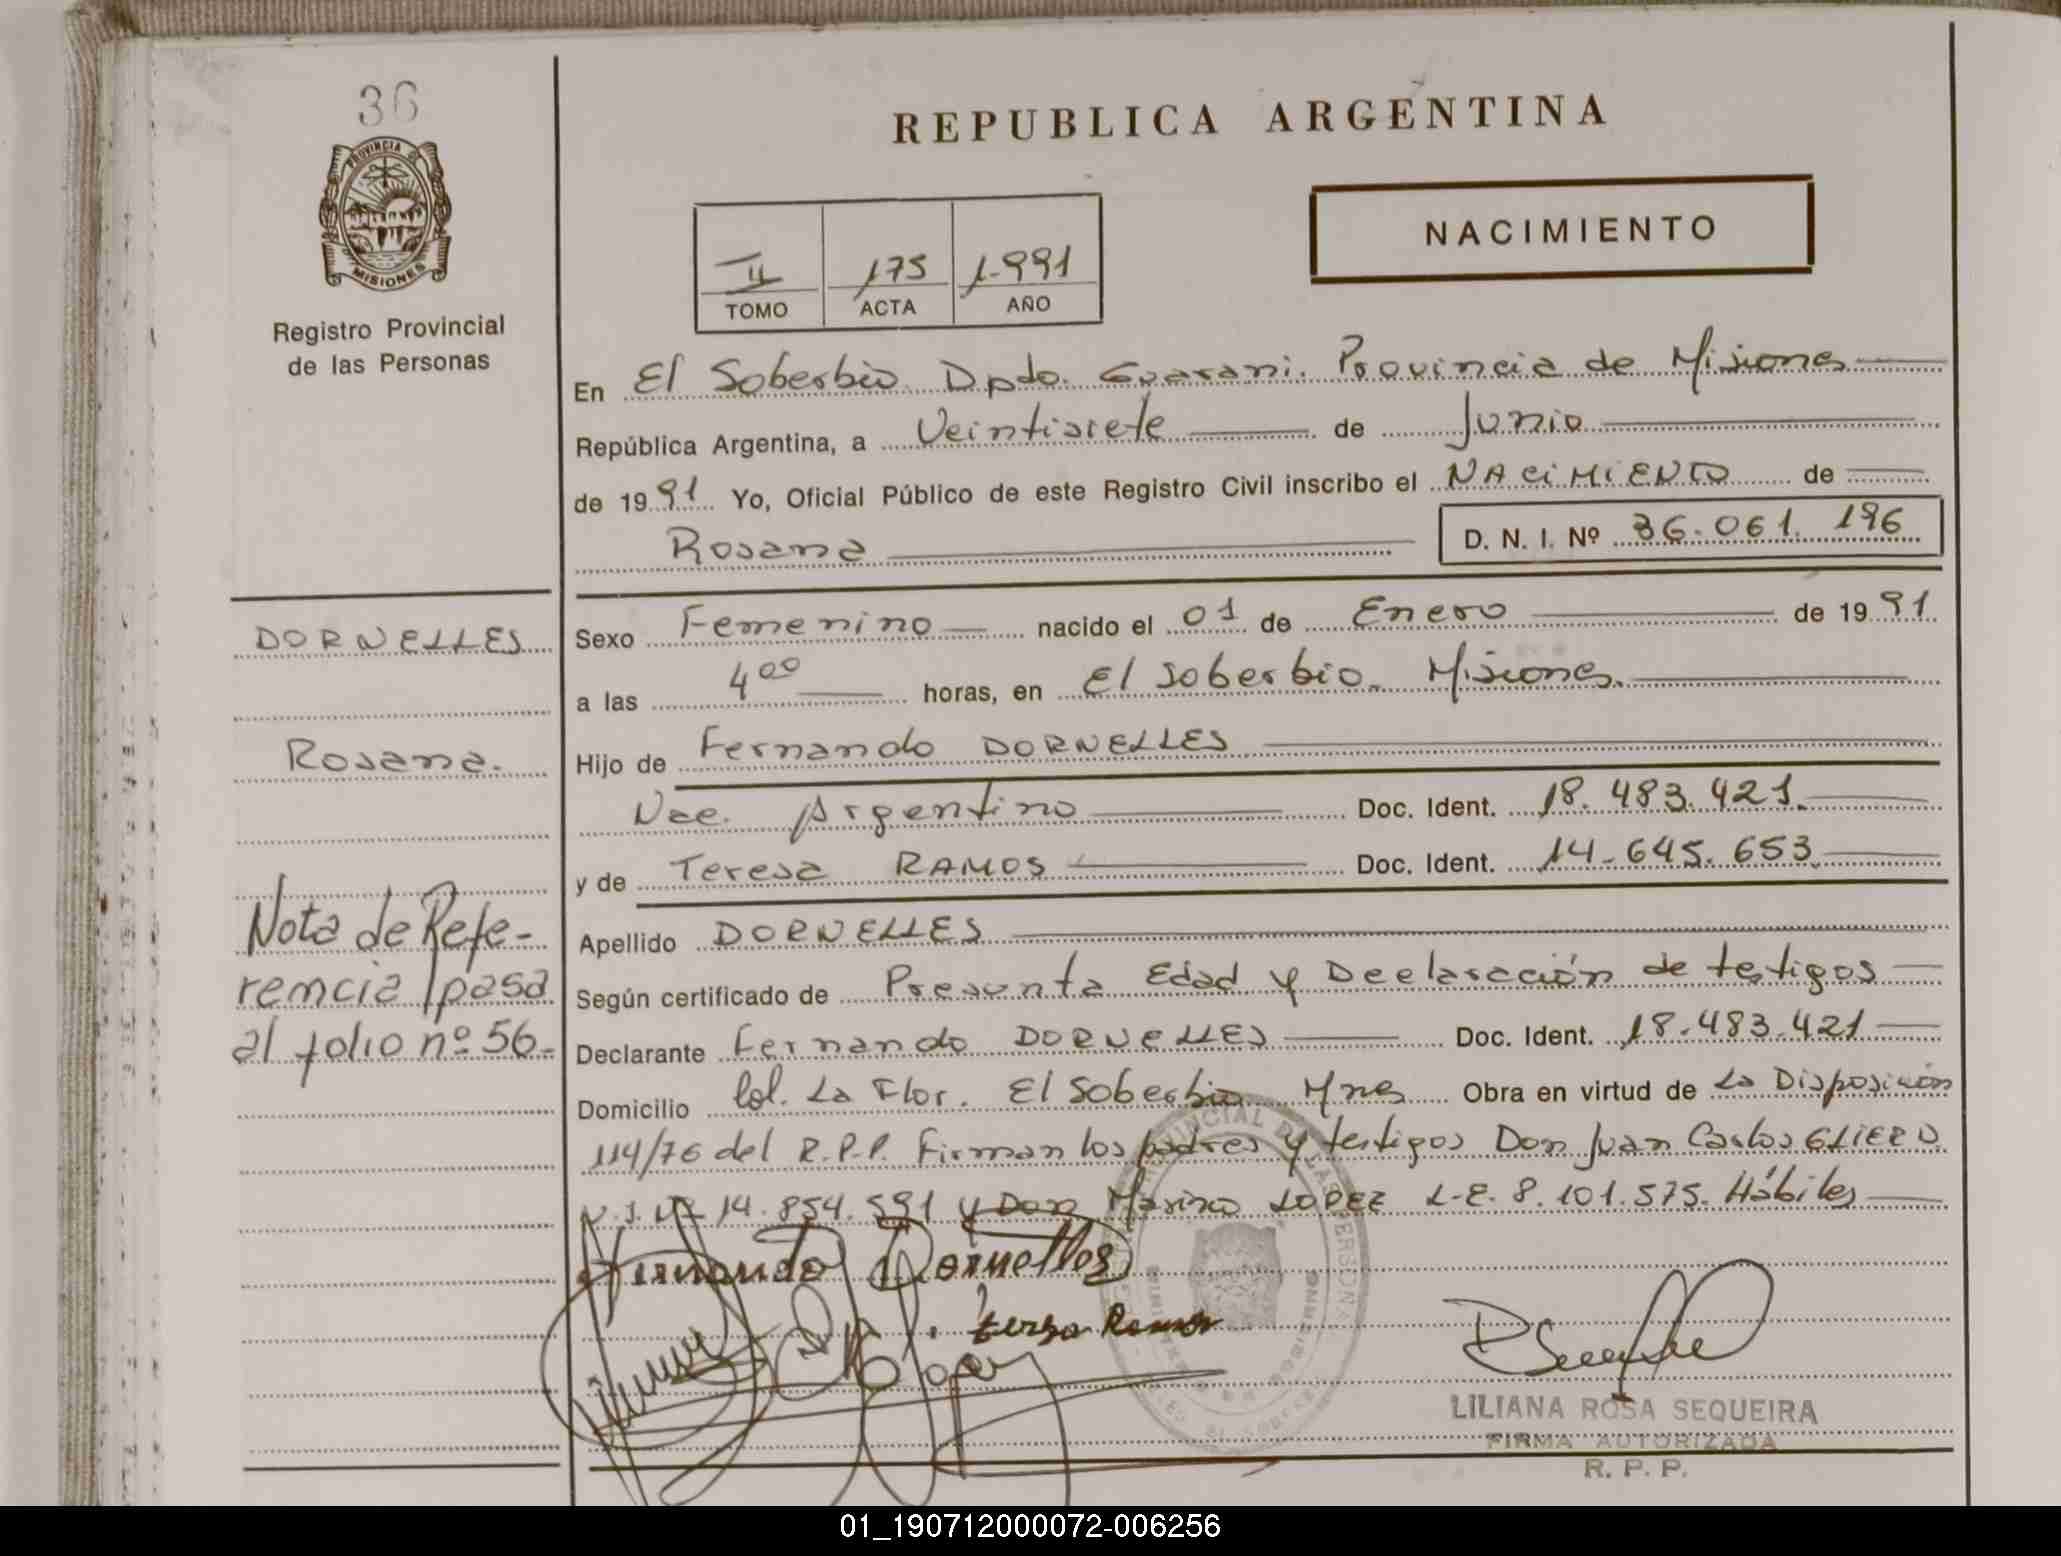 36
PROVINCIA DE
MISIONES
Registro Provincial
de las Personas
REPUBLICA ARGENTINA
NACIMIENTO
II 175 1.991
TOMO ACTA AÑO
En El Soberbio Dpdo. Guarani. Provincia de Misiones
República Argentina, a Veintisiete de Junio
de 1991 Yo, Oficial Público de este Registro Civil inscribo el NACIMIENTO de
Rosana
D. N. I. Nº 36.061.196
Sexo Femenino nacido el 01 de Enero de 1991
a las 4⁰⁰ horas, en El Soberbio. Misiones.
Hijo de Fernando DORNELLES
Nac. Argentino Doc. Ident. 18.483.421.
y de Teresa RAMOS Doc. Ident. 14.645.653
Apellido DORNELLES
Según certificado de Presunta Edad y Declaración de testigos
Declarante Fernando DORNELLES Doc. Ident. 18.483.421
Domicilio Col. La Flor. El Soberbio Mnes Obra en virtud de La Disposición
114/76 del R.P.P. Firman los padres y testigos Don Juan Carlos
14.854.591 y Don Marino LOPEZ L.E. 8.101.575. Hábiles
DORNELLES
Rosana.
Nota de Refe-
rencia pasa
al folio nº 56.
Fernando Dornelles
Teresa Ramos
LILIANA ROSA SEQUEIRA
FIRMA AUTORIZADA
R. P. P.
01_190712000072-006256